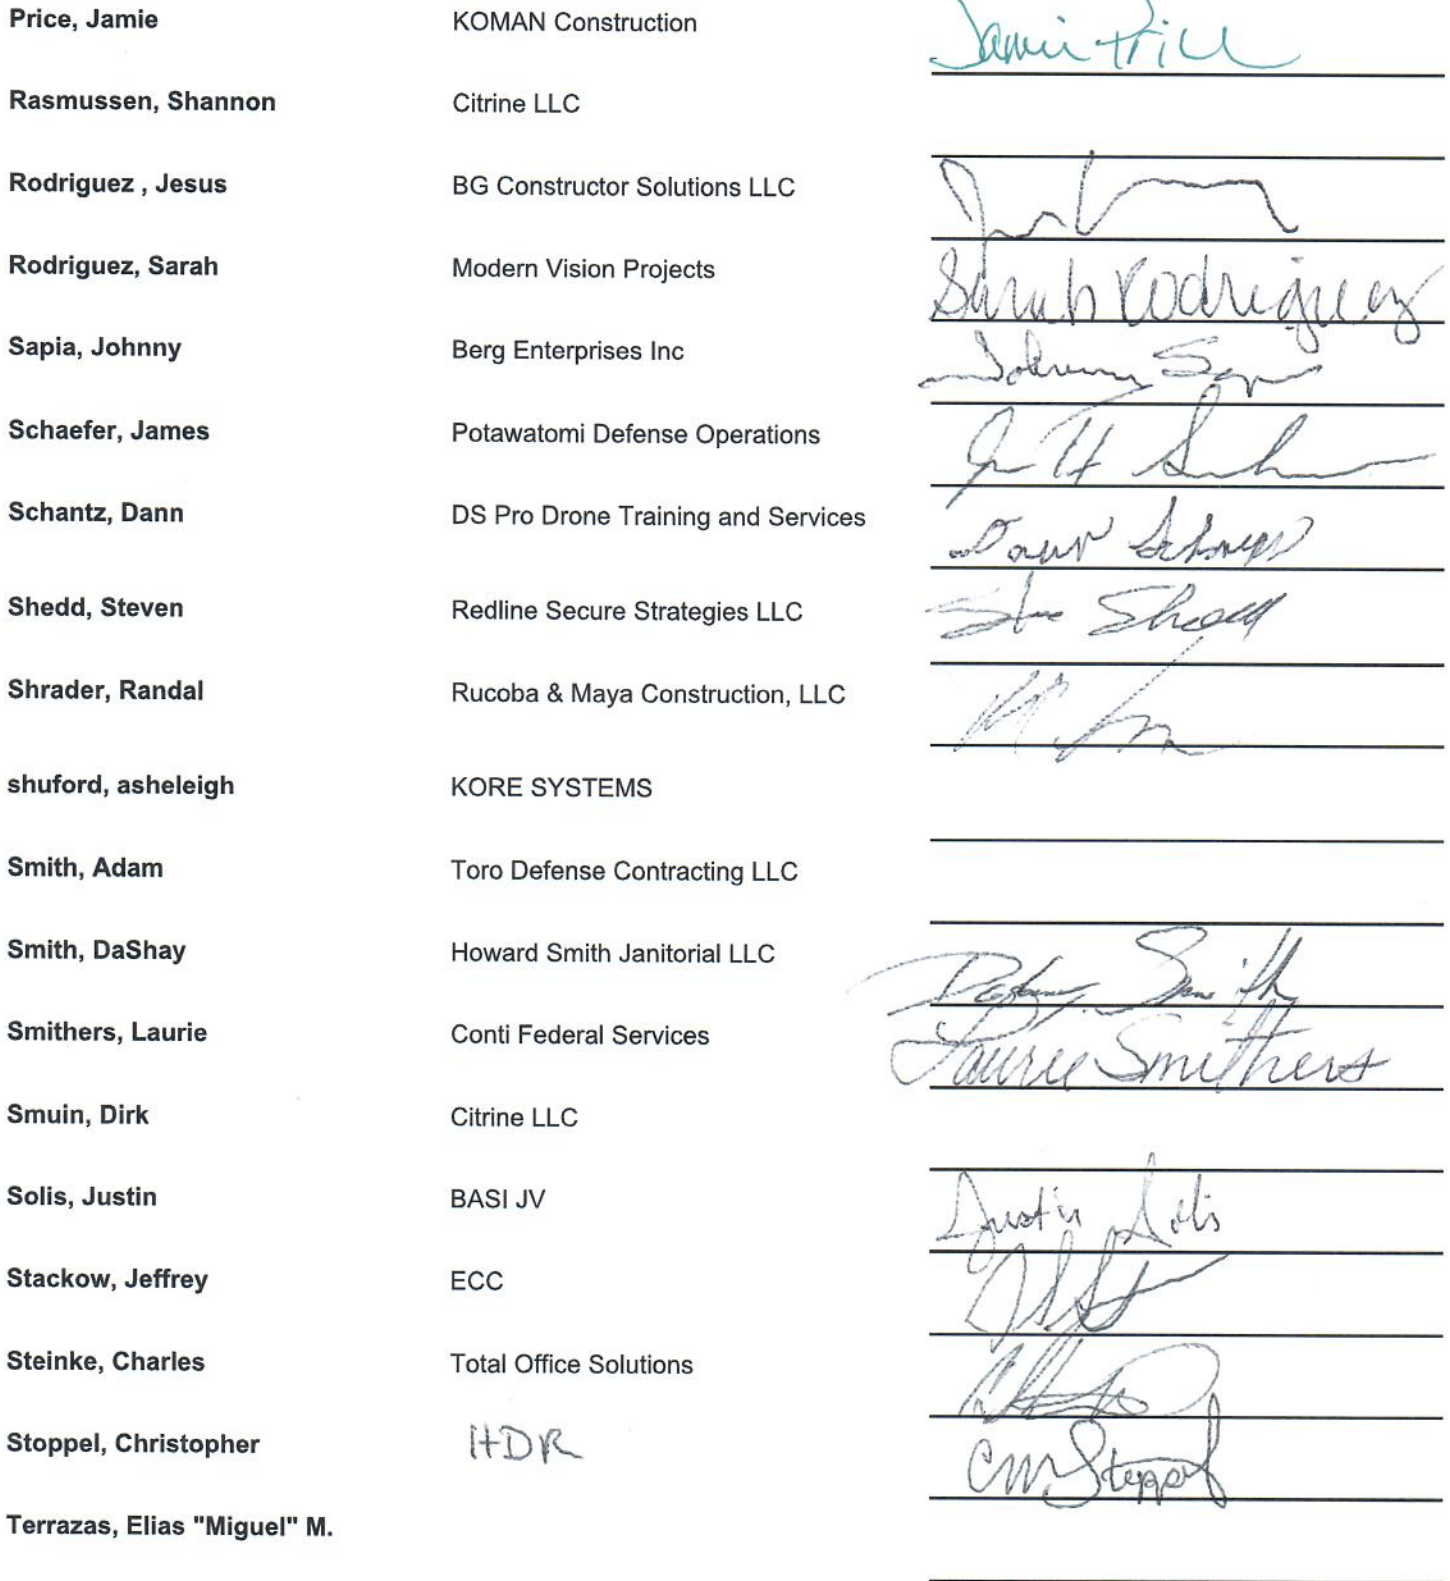 Price, Jamie KOMAN Construction Jamie Price
Rasmussen, Shannon Citrine LLC
Rodriguez , Jesus BG Constructor Solutions LLC
Rodriguez, Sarah Modern Vision Projects Sarah Rodriguez
Sapia, Johnny Berg Enterprises Inc Johnny Sapia
Schaefer, James Potawatomi Defense Operations
Schantz, Dann DS Pro Drone Training and Services Dann Schantz
Shedd, Steven Redline Secure Strategies LLC Steve Shedd
Shrader, Randal Rucoba & Maya Construction, LLC
shuford, asheleigh KORE SYSTEMS
Smith, Adam Toro Defense Contracting LLC
Smith, DaShay Howard Smith Janitorial LLC DaShay Smith
Smithers, Laurie Conti Federal Services Laurie Smithers
Smuin, Dirk Citrine LLC
Solis, Justin BASI JV Justin Solis
Stackow, Jeffrey ECC
Steinke, Charles Total Office Solutions
Stoppel, Christopher HDR CM Stoppel
Terrazas, Elias "Miguel" M.